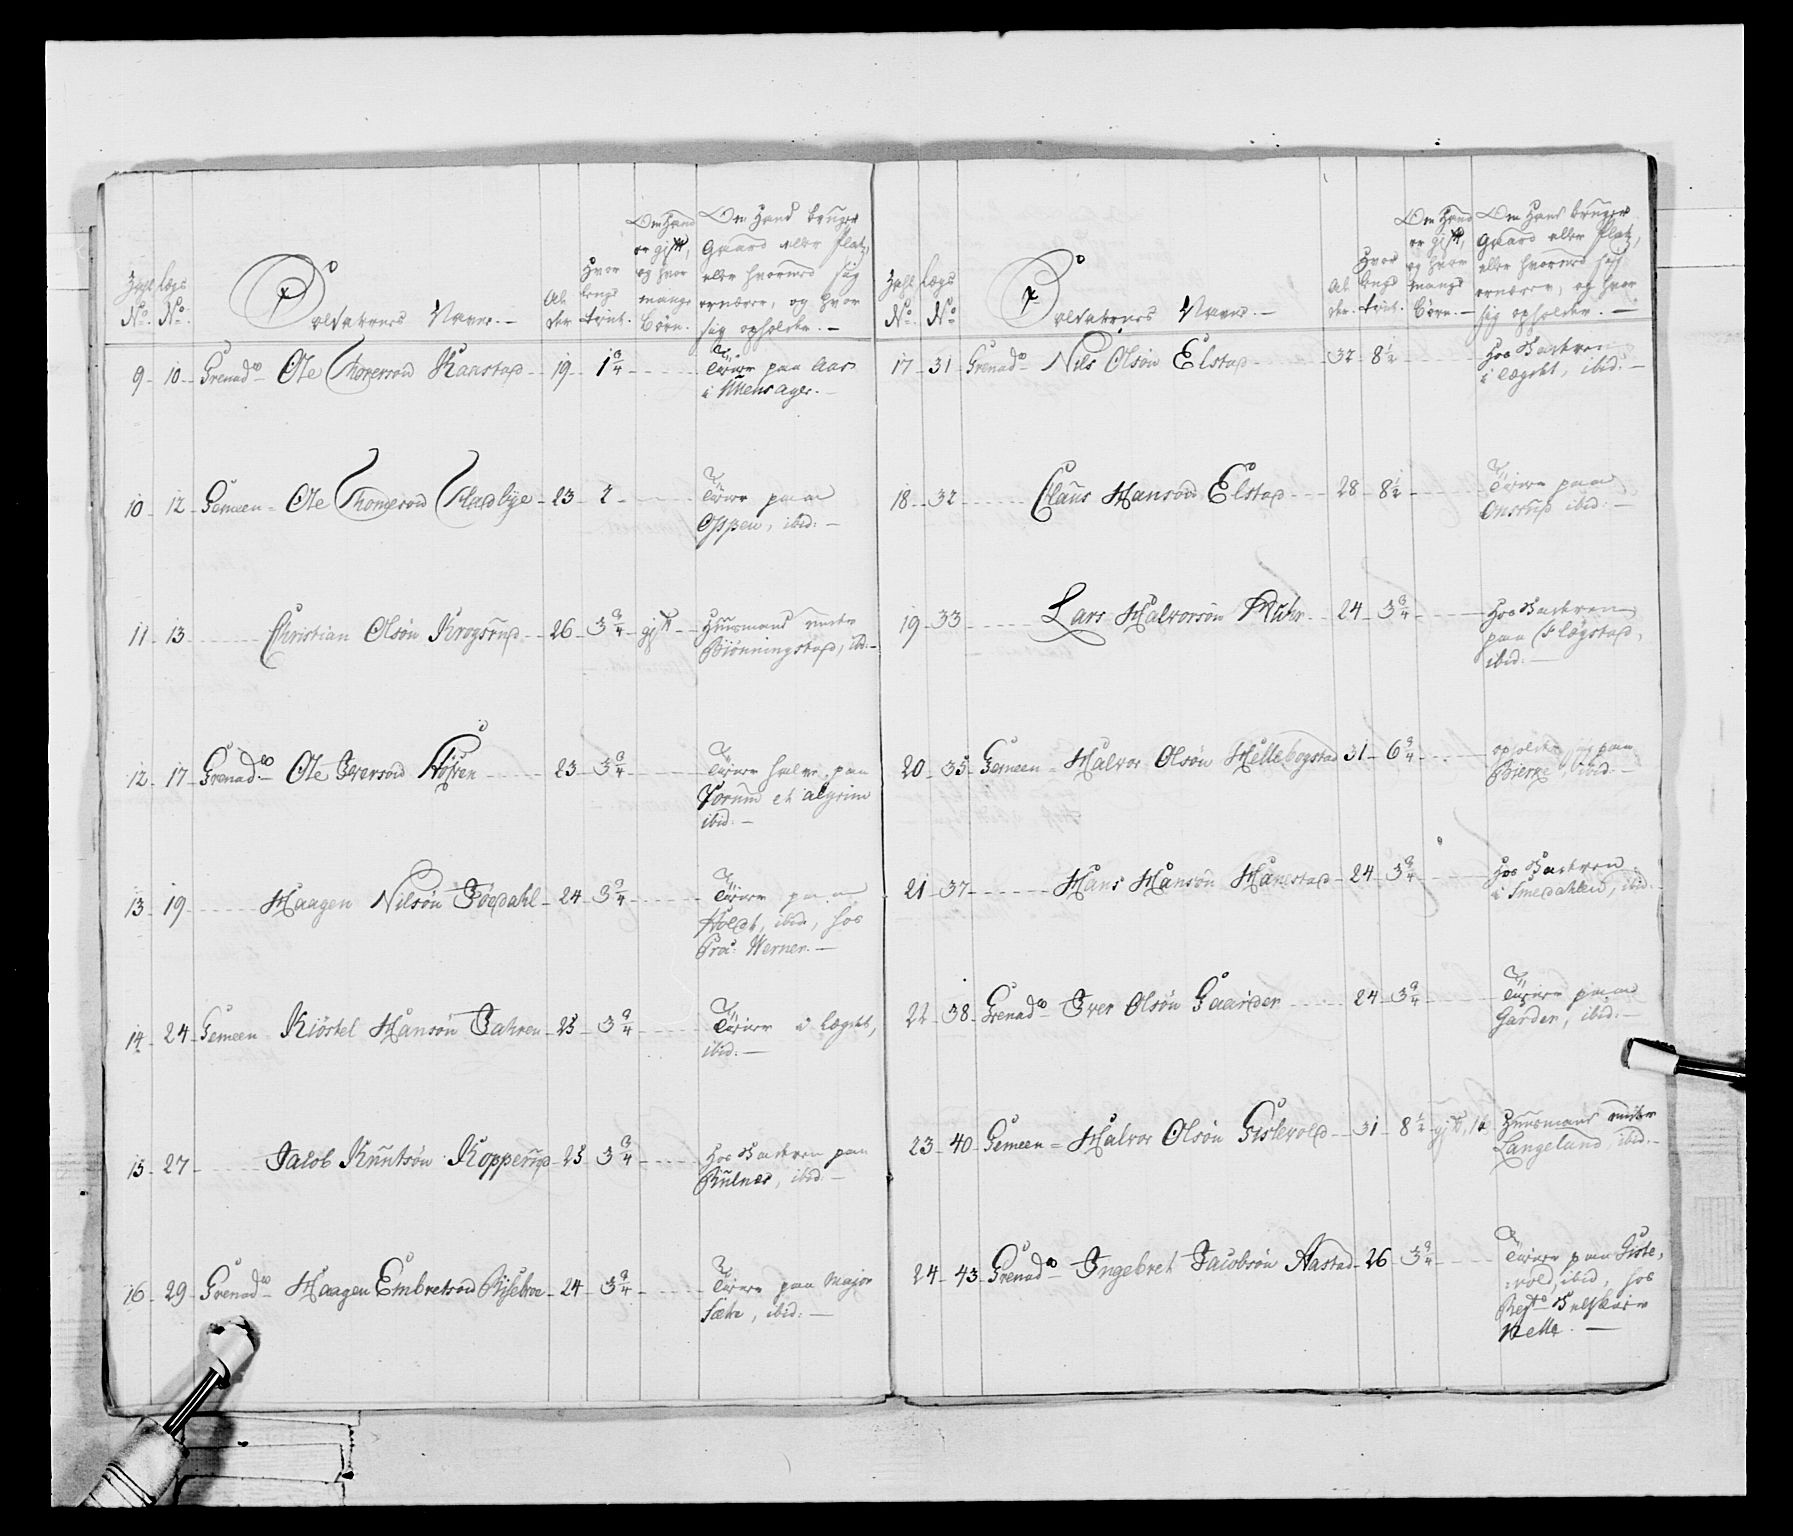 Zahl No. | Lægs No. | Soldaternes Navne. — | Alder | Hvor længe tient. | Om Hand er gift, og hvor mange Børn. | Om Hand bruger Gaard eller Platz, eller hvormed sig ernærer, og hvor sig opholder. —
9 - 10 - Grenadr Ole Thoersøn Kaanstad - 19 - 1 3/4 - Tiener paa Aas
i Ullensager. —
10 - 12 - Gemeen - Ole Thomesøn Fladbye - 23 - 2 - Tiener paa
Oppen, ibid: —
11 - 13 - Christian Olsøn Krogsrud - 26 - 3 3/4 - gift - Huusmand under
Biønningstad, ibd. —
12 - 17 - Grenadr: Ole Iversøn - 23 - 3 3/4 - Tiener paa
et
ibid: —
13 - 19 - Haagen Nilsøn - 24 - 3 3/4 - Tiener paa
Holdt, ibid, hos
Werner. —
14 - 24 - Gemeen Kiøstel Hansøn Jahren - 25 - 3 3/4 - Tiener i Lægdet,
ibid: —
15 - 27 - Jacob Knutsøn Kopperud - 25 - 3 3/4 - Hos Faderen paa
ibid: —
16 - 29 - Grenadr Haagen Embretsøn Risebroe - 24 - 3 3/4 - Tiener paa Major
Sætre, ibid: —
Zahl No. | Lægs No. | Soldaternes Navne. — | Alder. | Hvor længe tient. | Om Hand er gift, og hvor mange Børn. — | Om Hand bruger Gaard eller Platz, eller hvormed sig ernærer, og hvor sig opholder. —
17 - 31 Grenadr Nils Olsøn Elstad - 32 - 8 1/2 - Hos Faderen
i Lægdet, ibid. —
18 - 32 - Claus Hansøn Elstad - 28 - 8 1/2 - Tiener paa
Onsrud ibid: —
19 - 33 - Lars Halvorsøn - 24 - 3 3/4 - Hos Faderen
paa Algstad,
ibid: —
20 - 35 - Gemeen - Halvor Olsøn Hellebogstad 31 - 6 3/4 - opholder sig paa
Bierke, ibid: —
21 - 37 - Hans Hansøn Hanestad - 24 - 3 3/4 - Hos Faderen
i Smedahlen, ibid.
22 - 38 - Grenadr Iver Olsøn Gaarder - 24 - 3 3/4 - Tiener paa
Garder, ibid: —
23 - 40 - Gemeen - Halvor Olsøn Gistevold - 31 - 8 1/2 - gift, 1 - Huusmand under
Langeland, ibid: —
24 - 43 - Grenadr Ingebret Jacobsøn Aastad - 26 - 3 3/4 - Tiener paa Giste-
vold, ibid, hos
Regts Feltskier